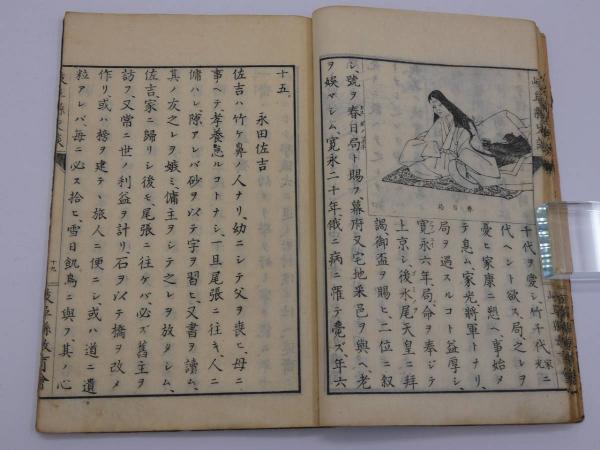 千代ヲ愛シ、竹千代 光家 ニ
代ヘント欲ス、局、之レヲ
憂ヒ、家康ニ愬ヘ、事始メ
テ息ム、家光將軍トナリ、
局ヲ過スルコト益厚シ、
寛永六年、局、命ヲ奉シテ
上京シ、後水尾天皇ニ拜
謁、御盃ヲ賜ヒ、二位ニ叙
シ、號ヲ春日局ト賜フ、幕府又宅地釆邑ヲ與ヘ、老
ヲ娯マシム、寛永二十年、俄ニ病ニ罹テ薨ズ、年六
春日局
十五、
永田佐吉
佐吉ハ竹ケ鼻ノ人ナリ、幼ニシテ父ヲ喪ヒ、母ニ
事ヘテ、孝養怠ルコトナシ、一旦尾張ニ往キ、人ニ
傭ハレ、隙アレバ砂ヲ以テ字ヲ習ヒ、又書ヲ讀ム、
其ノ友之レヲ嫉ミ、傭主ヲシテ之レヲ放タシム、
佐吉、家ニ歸リシ後モ、尾張ニ往ケバ、必ズ舊主ヲ
訪フ、又常ニ世ノ利益ヲ計リ、石ヲ以テ橋ヲ改メ
作リ、或ハ榜ヲ建テ、旅人ニ便ニシ、或ハ道ニ遺
粒アレバ、毎ニ必ス拾ヒ、雪日飢鳥ニ與フ、其ノ心
十九
岐阜縣教育會